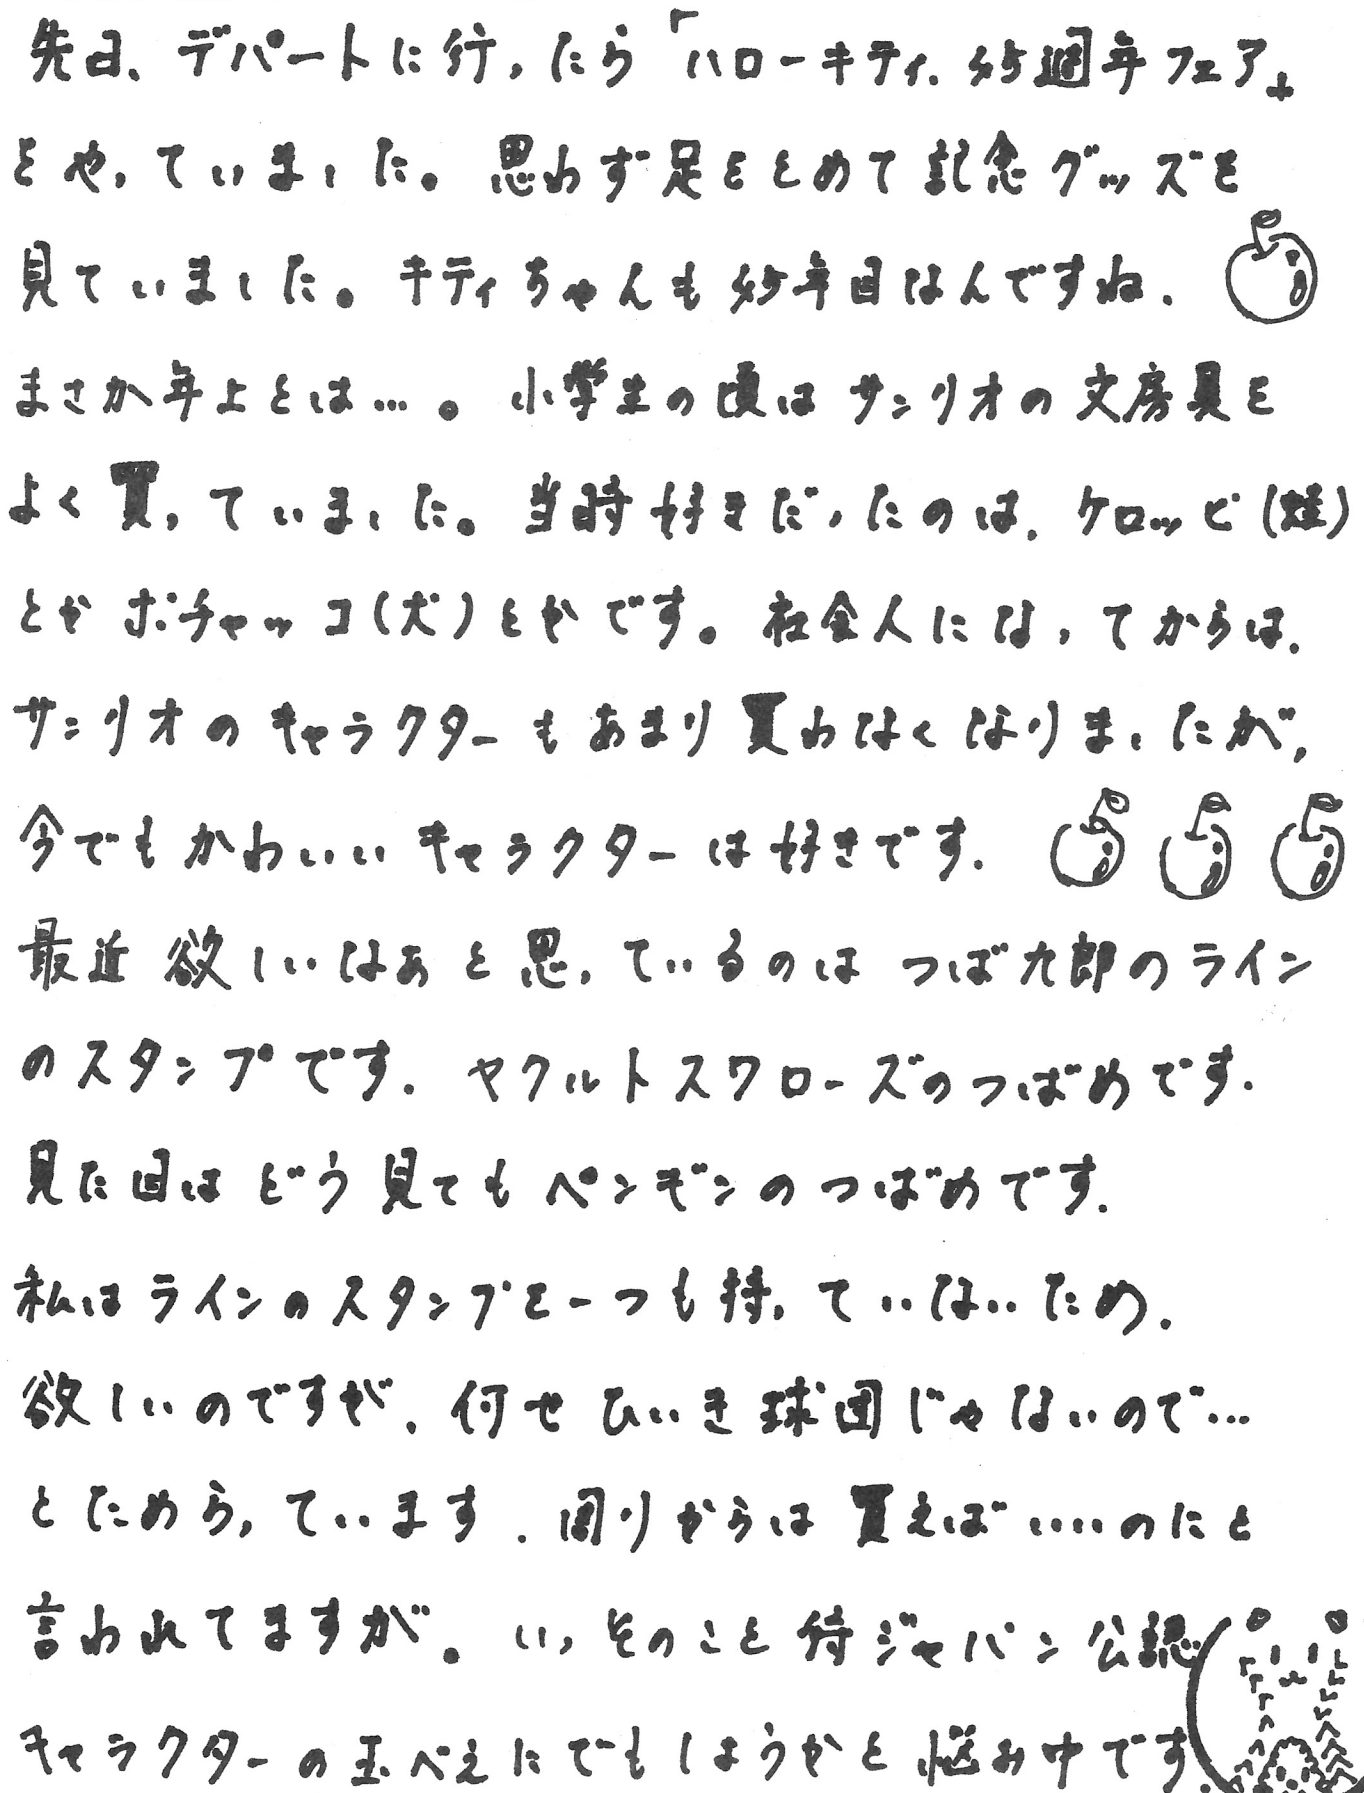 先日、デパートに行ったら「ハローキティ、45週年フェア」
をやっていました。思わず足をとめて記念グッズを
見ていました。キティちゃんも45年目なんですね、
まさか年上とは…。小学生の頃はサンリオの文房具を
よく買っていました。当時好きだったのは、ケロッピ(蛙)
とかポチャッコ(犬)とかです。社会人になってからは、
サンリオのキャラクターもあまり買わなくなりましたが、
今でもかわいいキャラクターは好きです。
最近欲しいなあと思っているのはつば九郎のライン
のスタンプです。ヤクルトスワローズのつばめです。
見た目はどう見てもペンギンのつばめです。
私はラインのスタンプを一つも持っていないため、
欲しいのですが、何せひいき球団じゃないので…
とためらっています。周りからは買えばいいのにと
言われてますが。いっそのこと侍ジャパン公認
キャラクターの玉べえにでもしようかと悩み中です。